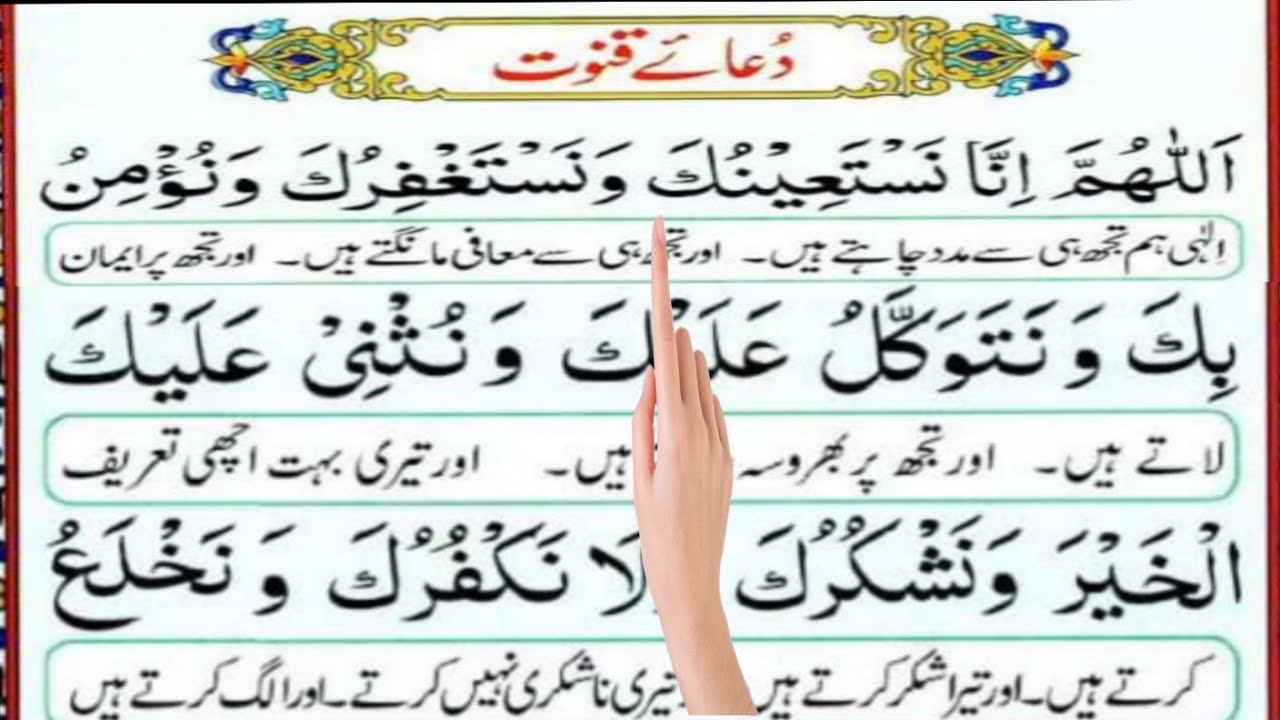 دُعائے قنوت
اَللّٰهُمَّ اِنَّا نَسْتَعِيْنُكَ وَنَسْتَغْفِرُكَ وَنُؤْمِنُ
اِلٰہی ہم تجھ ہی سے مدد چاہتے ہیں۔ اور تجھ ہی سے معافی مانگتے ہیں۔ اور تجھ پر ایمان
بِكَ وَنَتَوَكَّلُ عَلَيْكَ وَنُثْنِيْ عَلَيْكَ
لاتے ہیں۔ اور تجھ پر بھروسہ ہیں۔ اور تیری بہت اچھی تعریف
الْخَيْرَ وَنَشْكُرُكَ لَا نَكْفُرُكَ وَنَخْلَعُ
کرتے ہیں۔ اور تیرا شکر کرتے ہیں تیری ناشکری نہیں کرتے۔ اور الگ کرتے ہیں